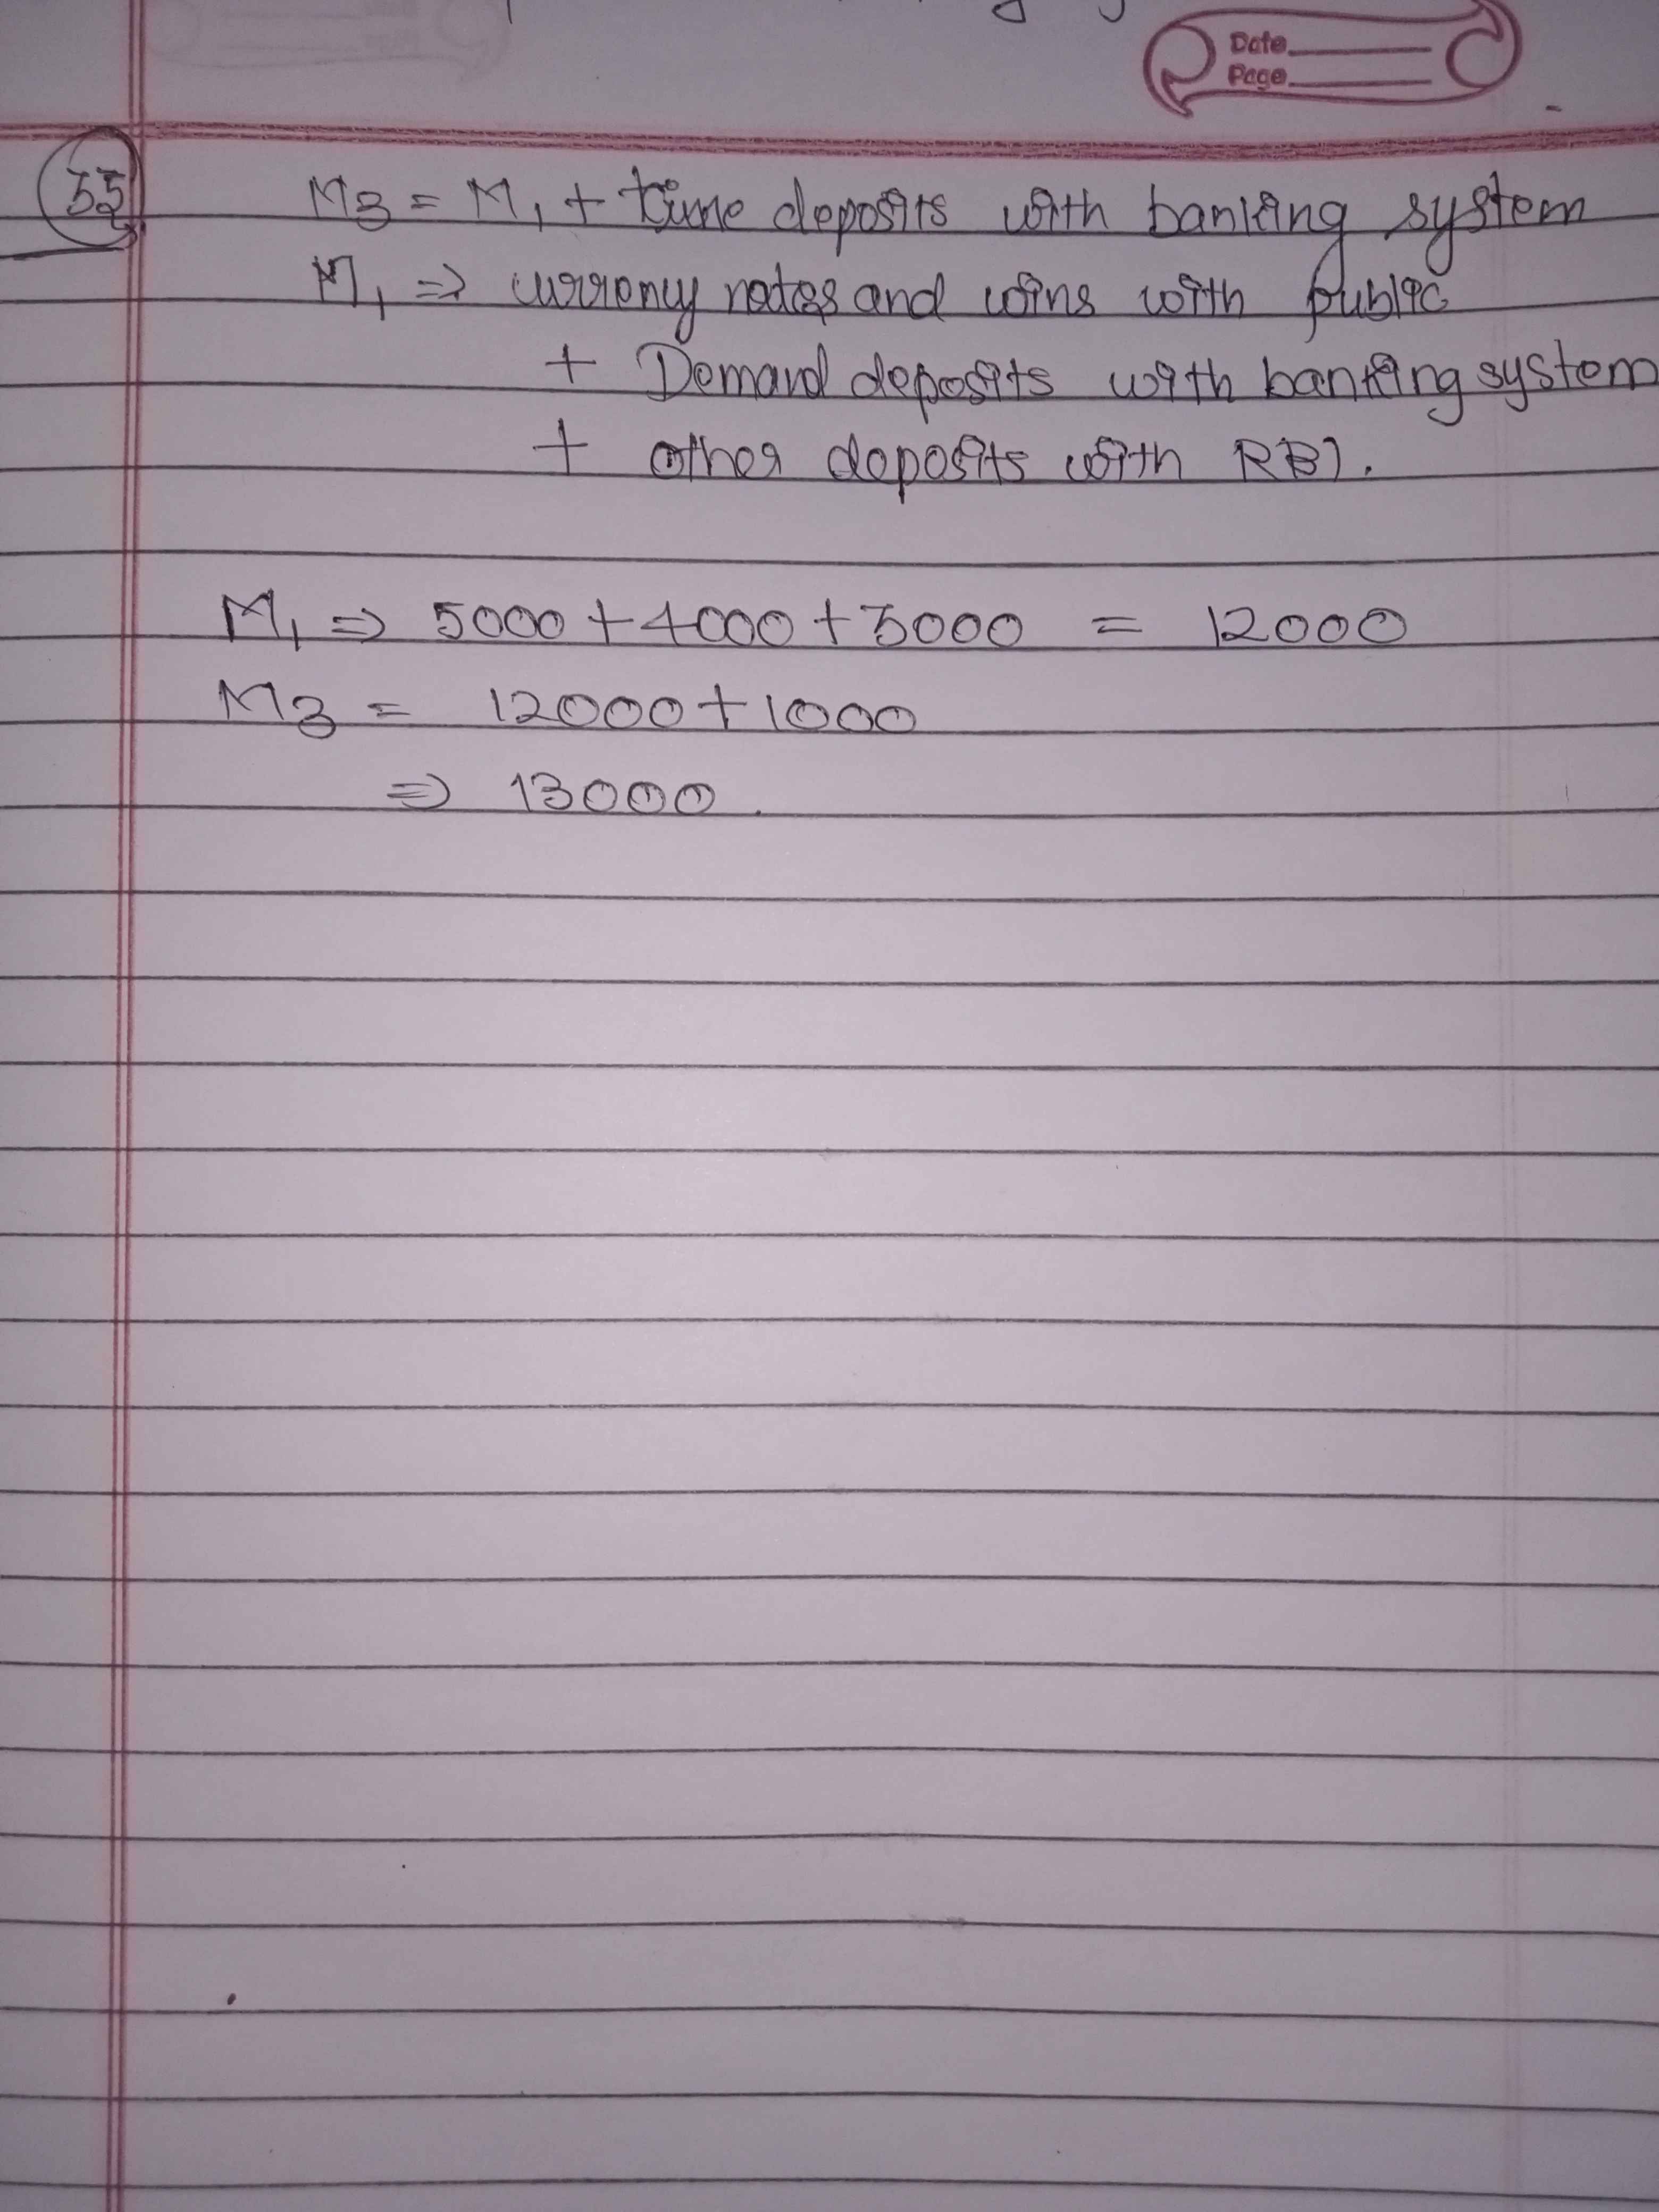 Date
Page
55 M3 = M1 + time deposits with banking system
M1 => currency notes and coins with public
+ Demand deposits with banking system
+ other deposits with RBI.
M1 => 5000 + 4000 + 3000 = 12000
M3 = 12000 + 1000
=> 13000.